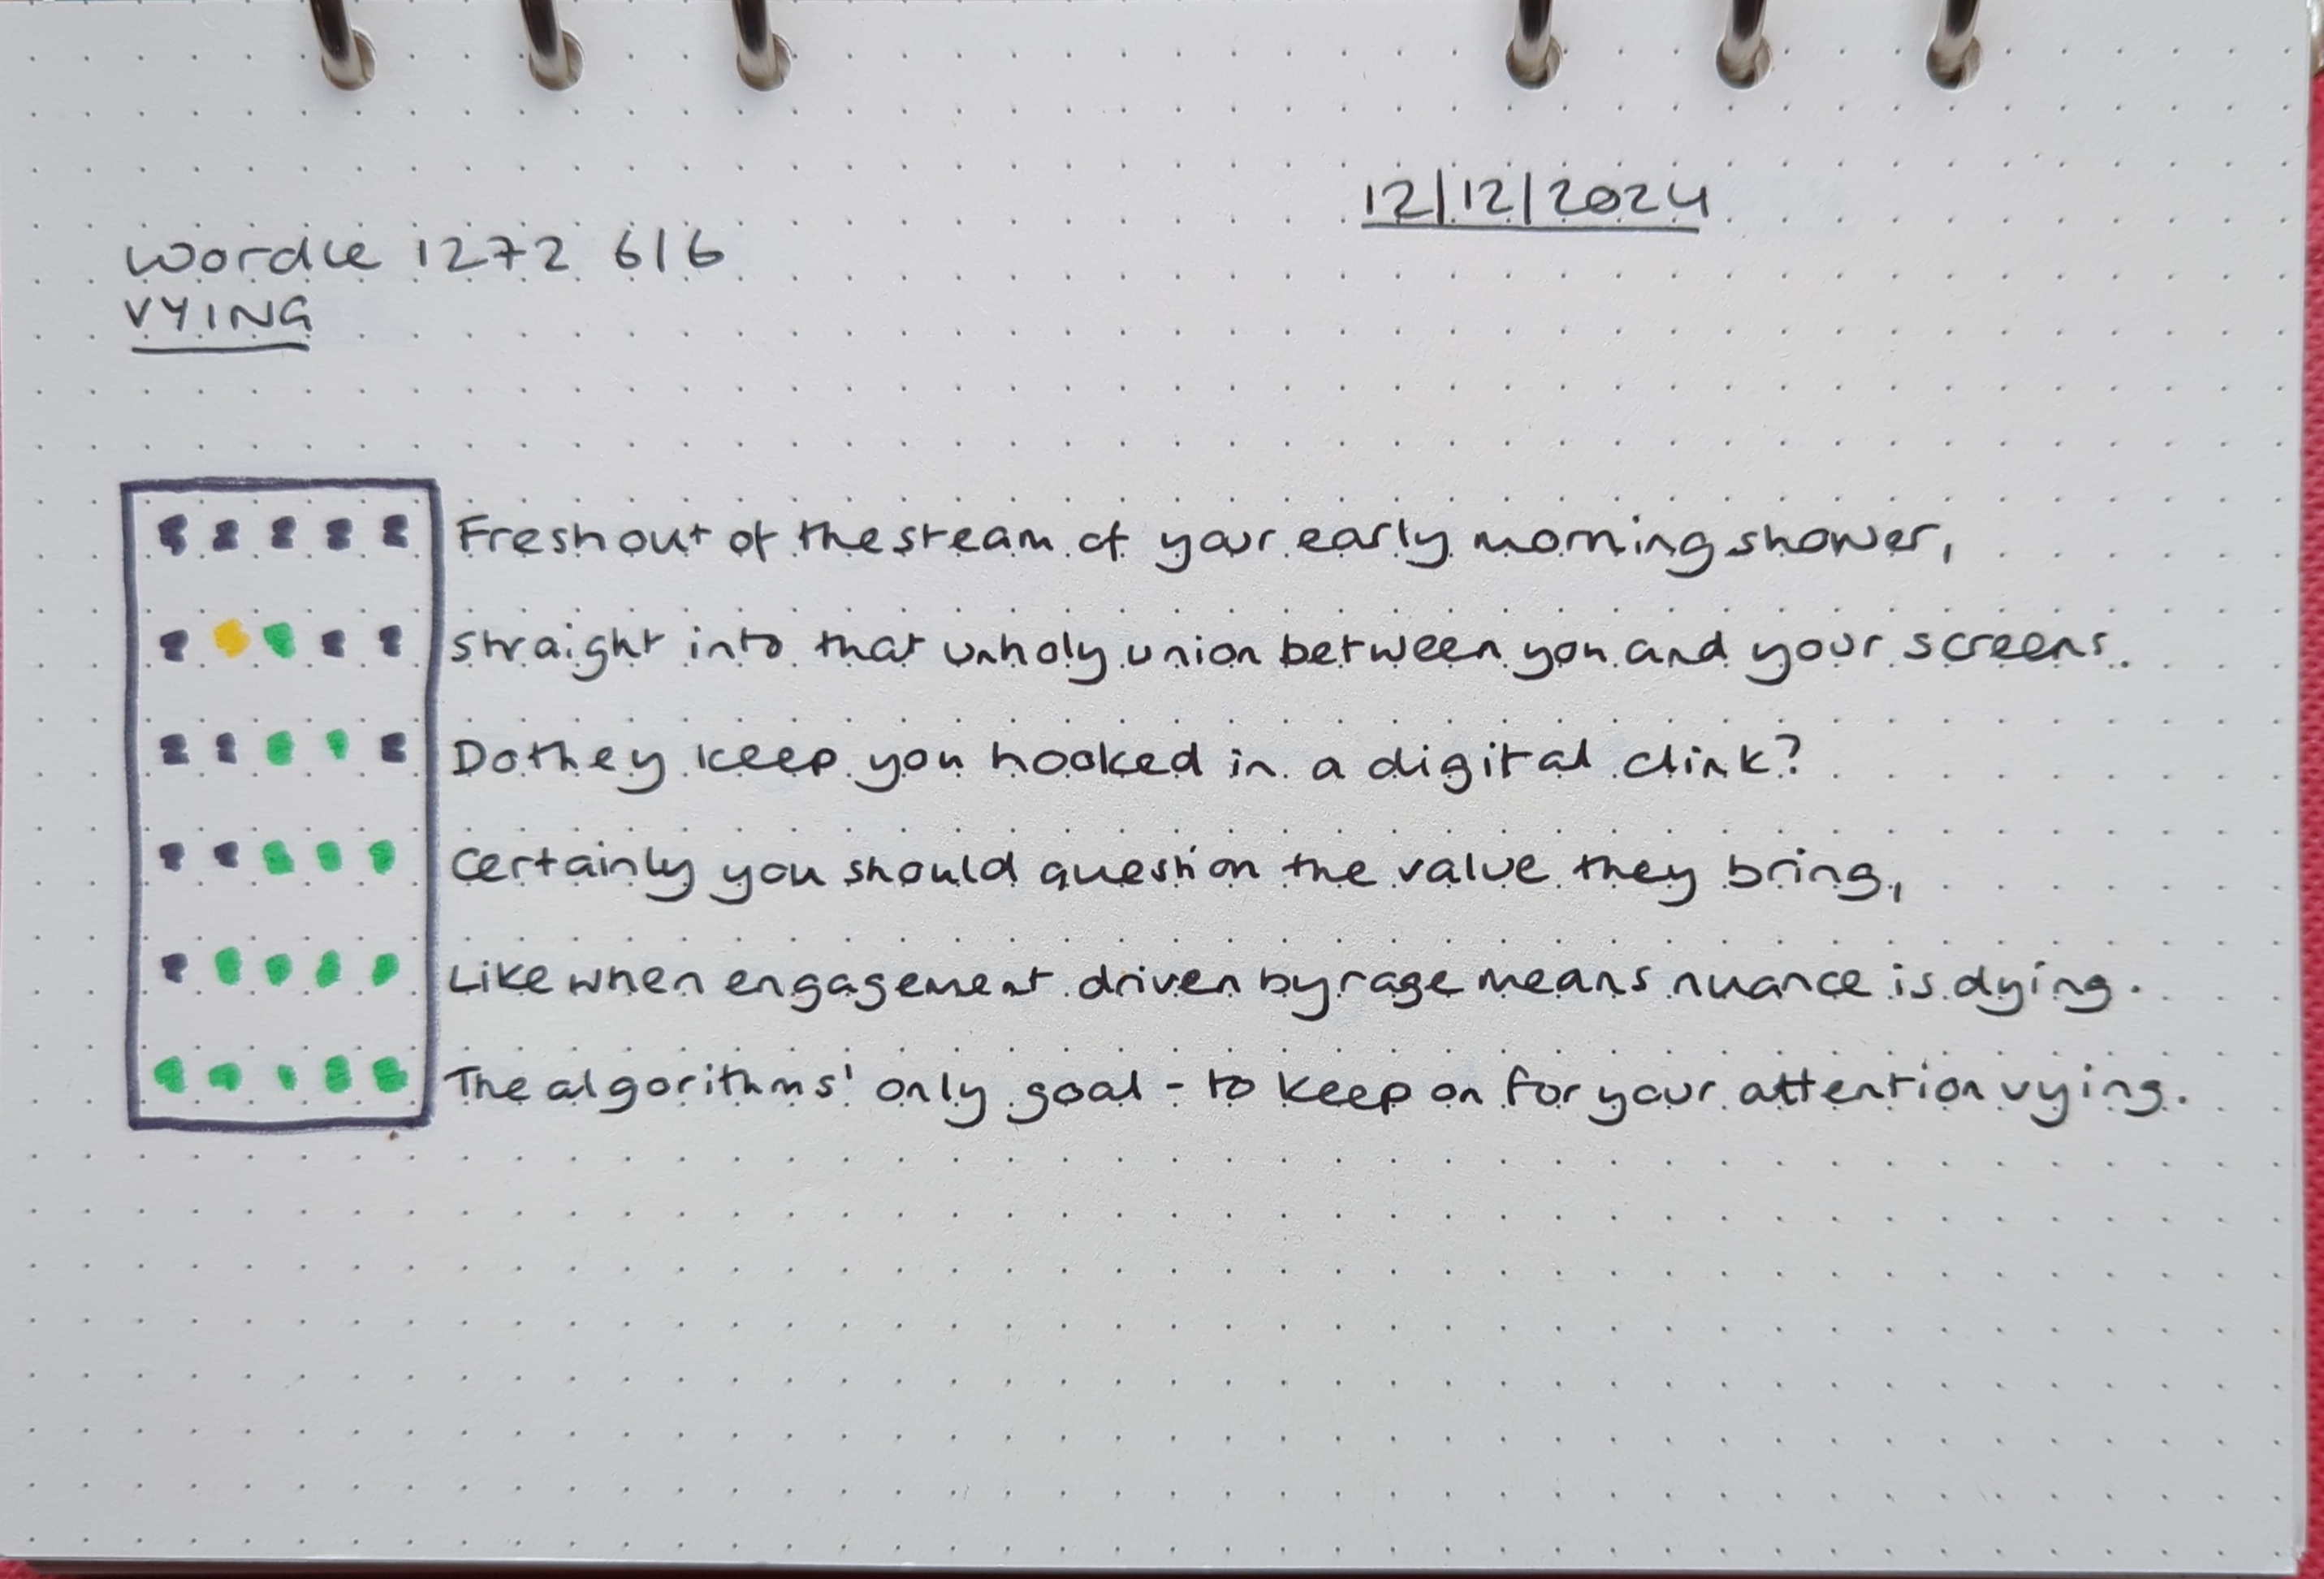 12/12/2024
Wordle 1272 6/6
VYING
Fresh out of the stream of your early morning shower,
straight into that unholy union between you and your screens.
Do they keep you hooked in a digital clink?
Certainly you should question the value they bring,
Like when engagement driven by rage means nuance is dying.
The algorithms' only goal - to keep on for your attention vying.